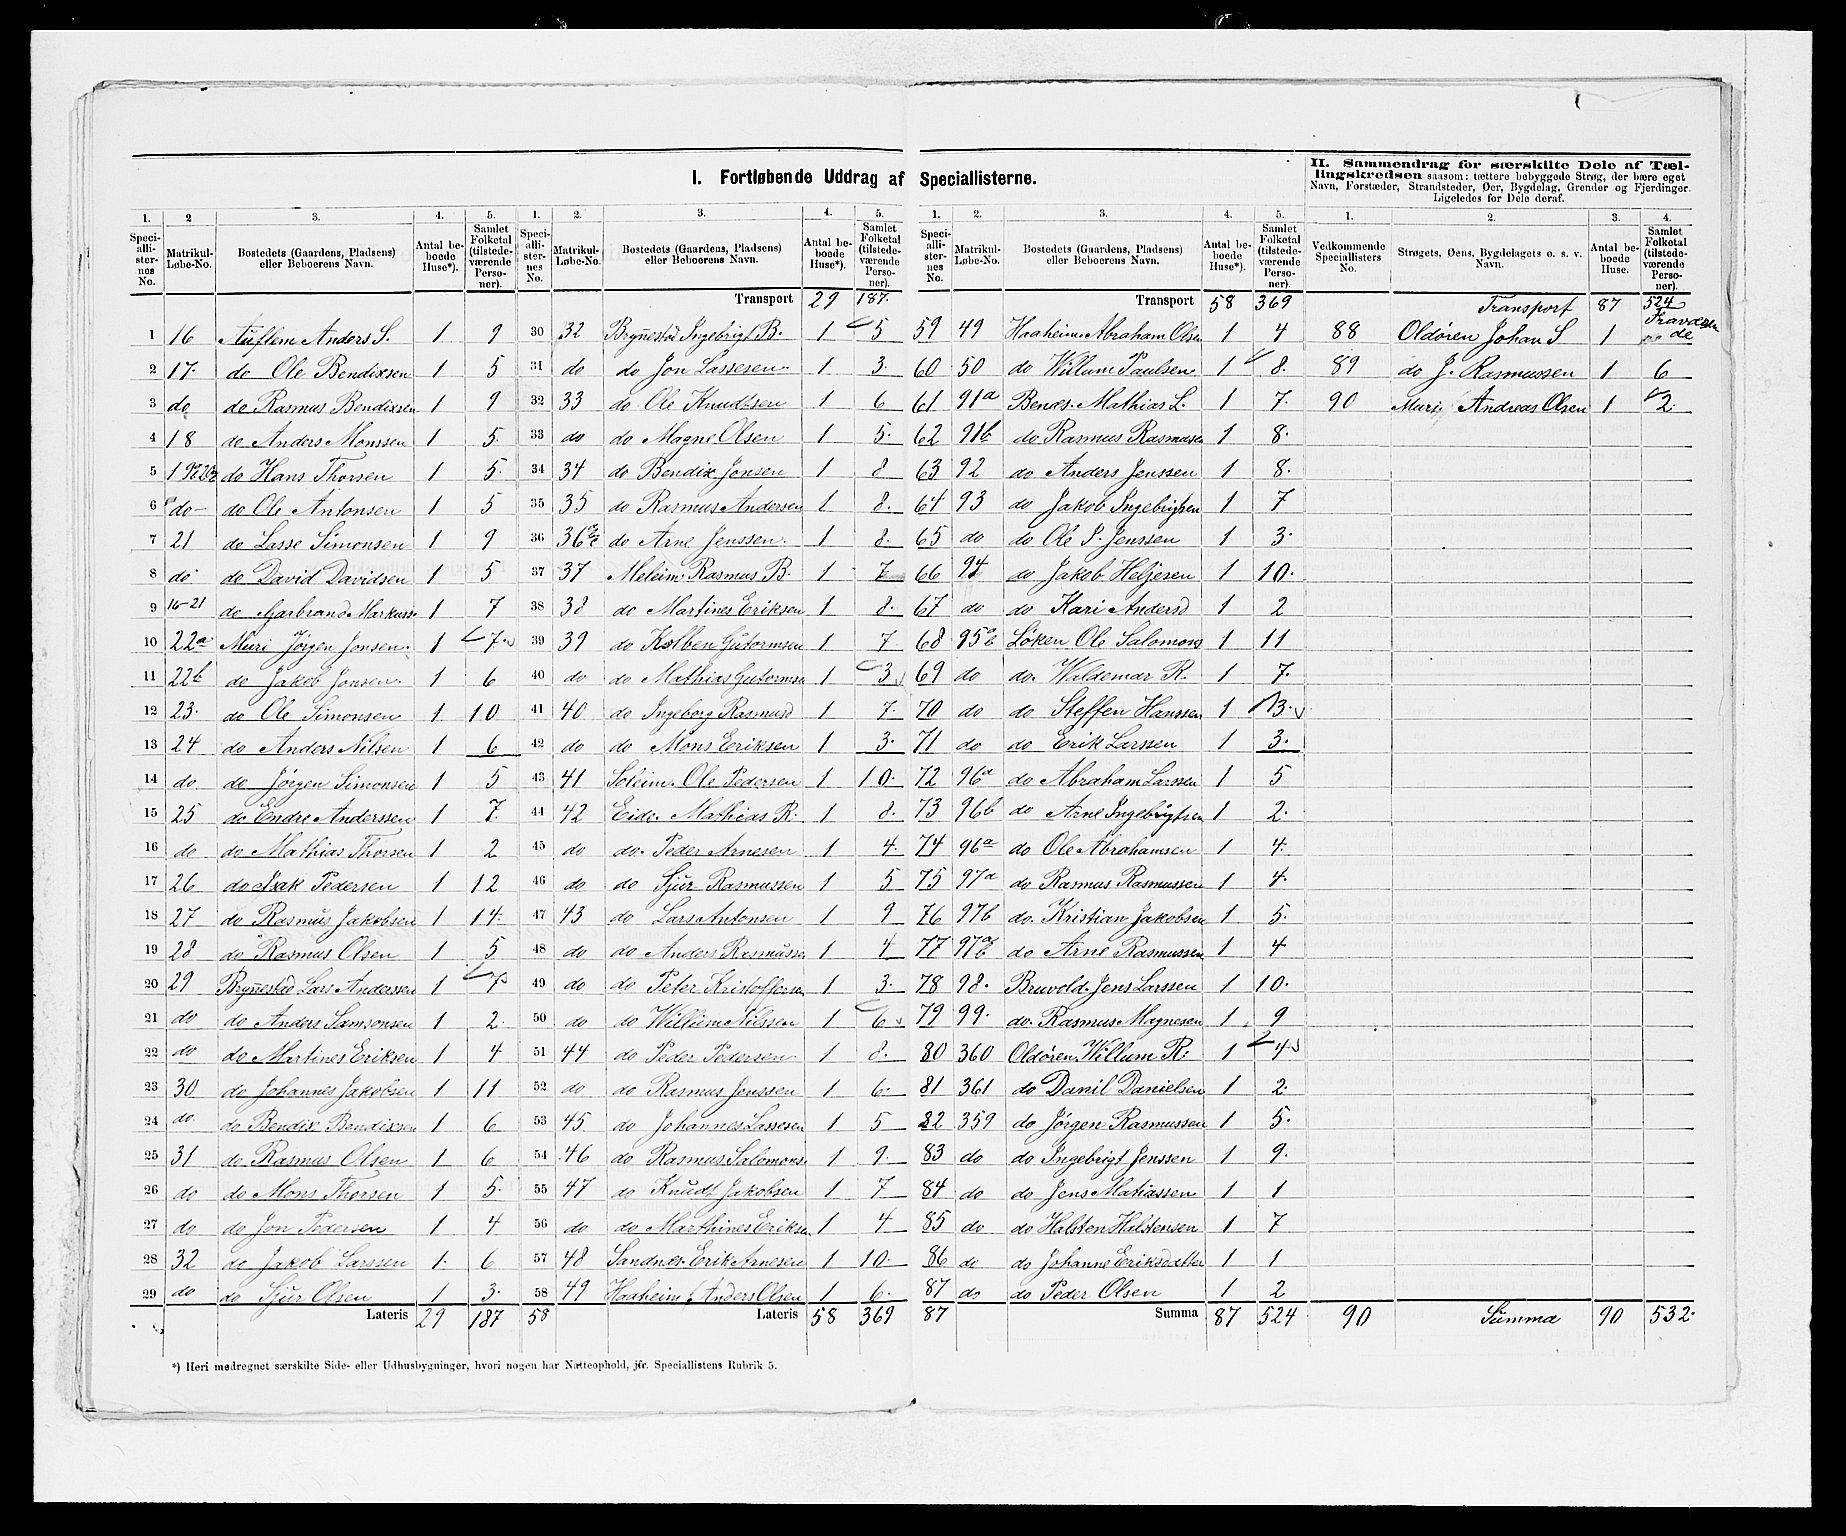 I. Fortløbende Uddrag af Speciallisterne.
II. Sammendrag for særskilte Dele af Tællingskredsen saasom: tættere bebyggede Strøg, der bære eget
Navn, Forstæder, Strandsteder, Øer, Bygdelag, Grender og Fjerdinger.
Ligeledes for Dele deraf.
1. 2 3. 4. 5.
Speciallisternes No. Matrikul-Løbe-No. Bostedets (Gaardens, Pladsens) eller Beboerens Navn. Antal beboede Huse*). Samlet Folketal (tilstedeværende Personer).
1 16 Auflem Anders S. 1 9
2 17. do Ole Bendixsen 1 5
3 do de Rasmus Bendixsen 1 9
4 18 de Anders Monssen 1 5.
5 do Hans Thorsen 1 5.
6 do- do Ole Antonsen 1 5
7 21 de Lasse Simonsen 1 9
8 do de David Davidsen 1 5
9 16-21 de Garbrand Markuss 1 7
10 22a Muri Jørgen Jonsen. 1 7.
11 22b de Jakob Jonsen. 1 6
12 23. do Ole Simonsen 1 10
13 24 do Anders Nilsen 1 6
14 do do Jørgen Simonsen 1 5
15 25 do Endre Anderssen 1 7.
16 do do Mathias Thorsen 1 2
17 26 do Isak Pedersen 1 12
18 27 do Rasmus Jakobsen 1 14.
19 28 do Rasmus Olsen 1 5
20 29 Brynestad Lars Anderssen 1 7
21 do do Anders Samsonsen 1 2.
22 do do Martines Eriksen 1 4
23 30 do Johannes Jakobsen 1 11
24 do do Bendix Bendixsen 1 6
25 31 do Rasmus Olsen 1 6
26 do do Mons Thorsen 1 5.
27 do do Jon Pedersen 1 4
28 32 do Jakob Larssen 1. 6
29 do do Sjur Olsen 1 3.
Lateris 29 187
1. 2. 3. 4. 5.
Speciallisternes No. Matrikul-Løbe-No. Bostedets (Gaardens, Pladsens) eller Beboerens Navn. Antal beboede Huse*). Samlet Folketal (tilstedeværende Personer).
Transport 29 187.
30 32 Brynestad Ingebrigt B. 1 5
31 do do Jon Lassesen. 1 3.
32 33 do Ole Knudtsen 1 6
33 do do Magne Olsen 1 5.
34 34 do Bendix Jonsen 1 8
35 35 do Rasmus Andersen 1 8.
36 do Arne Jenssen. 1 8.
37 37 Meleim Rasmus B. 1 7
38 38 do Martines Eriksen 1 8.
39 39 do Kolben Gutormsen 1 7
40 do do Mathias Gutormsen 1 3
41 40 do Ingeborg Rasmusd 1 7.
42 do do Mons Eriksen 1 3.
43 41 Soleim. Ole Pedersen 1 10.
44 42 Eide. Mathias R. 1 8.
45 do do. Peder Arnesen 1 4.
46 do do Sjur Rasmussen 1 5
47 43 do Lars Antonsen 1 9
48 do do Anders Rasmussen 1 4
49 do do Peter Kristoffersen 1 3.
50 do do Willum Nilssen 1 6
51 44 do Peder Pedersen 1 8.
52 do do Rasmus Jenssen 1 6.
53 45 do Johannes Lassesen 1 5
54 46 do Rasmus Salomons. 1 9.
55 47 do Knudt Jakobsen 1 7
56 do do Marthines Eriksen 1 4
57 48 Sandnes Erik Arnesen 1 10.
58 49 Haaheim Anders Olsen 1 6.
58 Lateris 58 369
1. 2. 3. 4. 5.
Speciallisternes No. Matrikul-Løbe-No. Bostedets (Gaardens, Pladsens) eller Beboerens Navn. Antal beboede Huse*). Samlet Folketal (tilstedeværende Personer).
Transport 58 369
59 49 Haaheim Abraham Olsen 1 4
60 50 do Willum Paulsen 1 8.
61 91a Benes. Mathias L. 1 7.
62 91b do Rasmus Rasmusen 1 8.
63 92 do Anders Jenssen 1 8.
64 93 do Jakob Ingebrigtsen 1 7
65 do do Ole P. Jenssen 1 3.
66 94 do Jakob Heljesen 1 10.
67 do do Kari Andersd 1 2
68 Løken Ole Salomons 1 11
69 do do. Waldemar R. 1 7.
70 do do Steffen Hanssen 1 3.
71 do do Erik Larssen 1 3.
72 96a do Abraham Larssen 1 5
73 96b do Arne Ingebrigtsen 1 2.
74 96a do Ole Abrahamsen 1 4.
75 97a do Rasmus Rasmussen 1 4.
76 97b do. Kristian Jakobsen 1 5.
77 do Arne Rasmussen 1 4
78 98. Bruvold. Jens Larssen 1 10.
79 99. do. Rasmus Magnesen 1 9
80 360 Oldøren Willum R. 1 4
81 361 do Danil Danielsen 1 2.
82 359 do Jørgen Rasmussen 1 5.
83 do do Ingebrigt Jenssen 1 9.
84 do do Jens Matiassen 1 1
85 do do Halsten Halstensen 1 7
86 do do Johanne Eriksdatter 1 1
87 do do Peder Olsen 1 2
87 Summa 87 524
1. 2. 3. 4.
Vedkommende Speciallisters No. Strøgets, Øens, Bygdelagets o. s. v. Navn. Antal beboede Huse. Samlet Folketal (tilstedeværende Personer).
Transport 87 524
88 Oldøren Johan S 1 Fraværende
89 do J. Rasmussen 1 6
90 Muri Andreas Olsen 1 2.
90 Summa 90 532.
*) Heri medregnet særskilte Side- eller Udhusbygninger, hvori nogen har Natteophold, jfr. Speciallistens Rubrik 5.